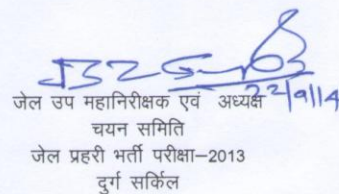 22/9/14
जेल उप महानिरीक्षक एवं अध्यक्ष
चयन समिति
जेल प्रहरी भर्ती परीक्षा–2013
दुर्ग सर्किल